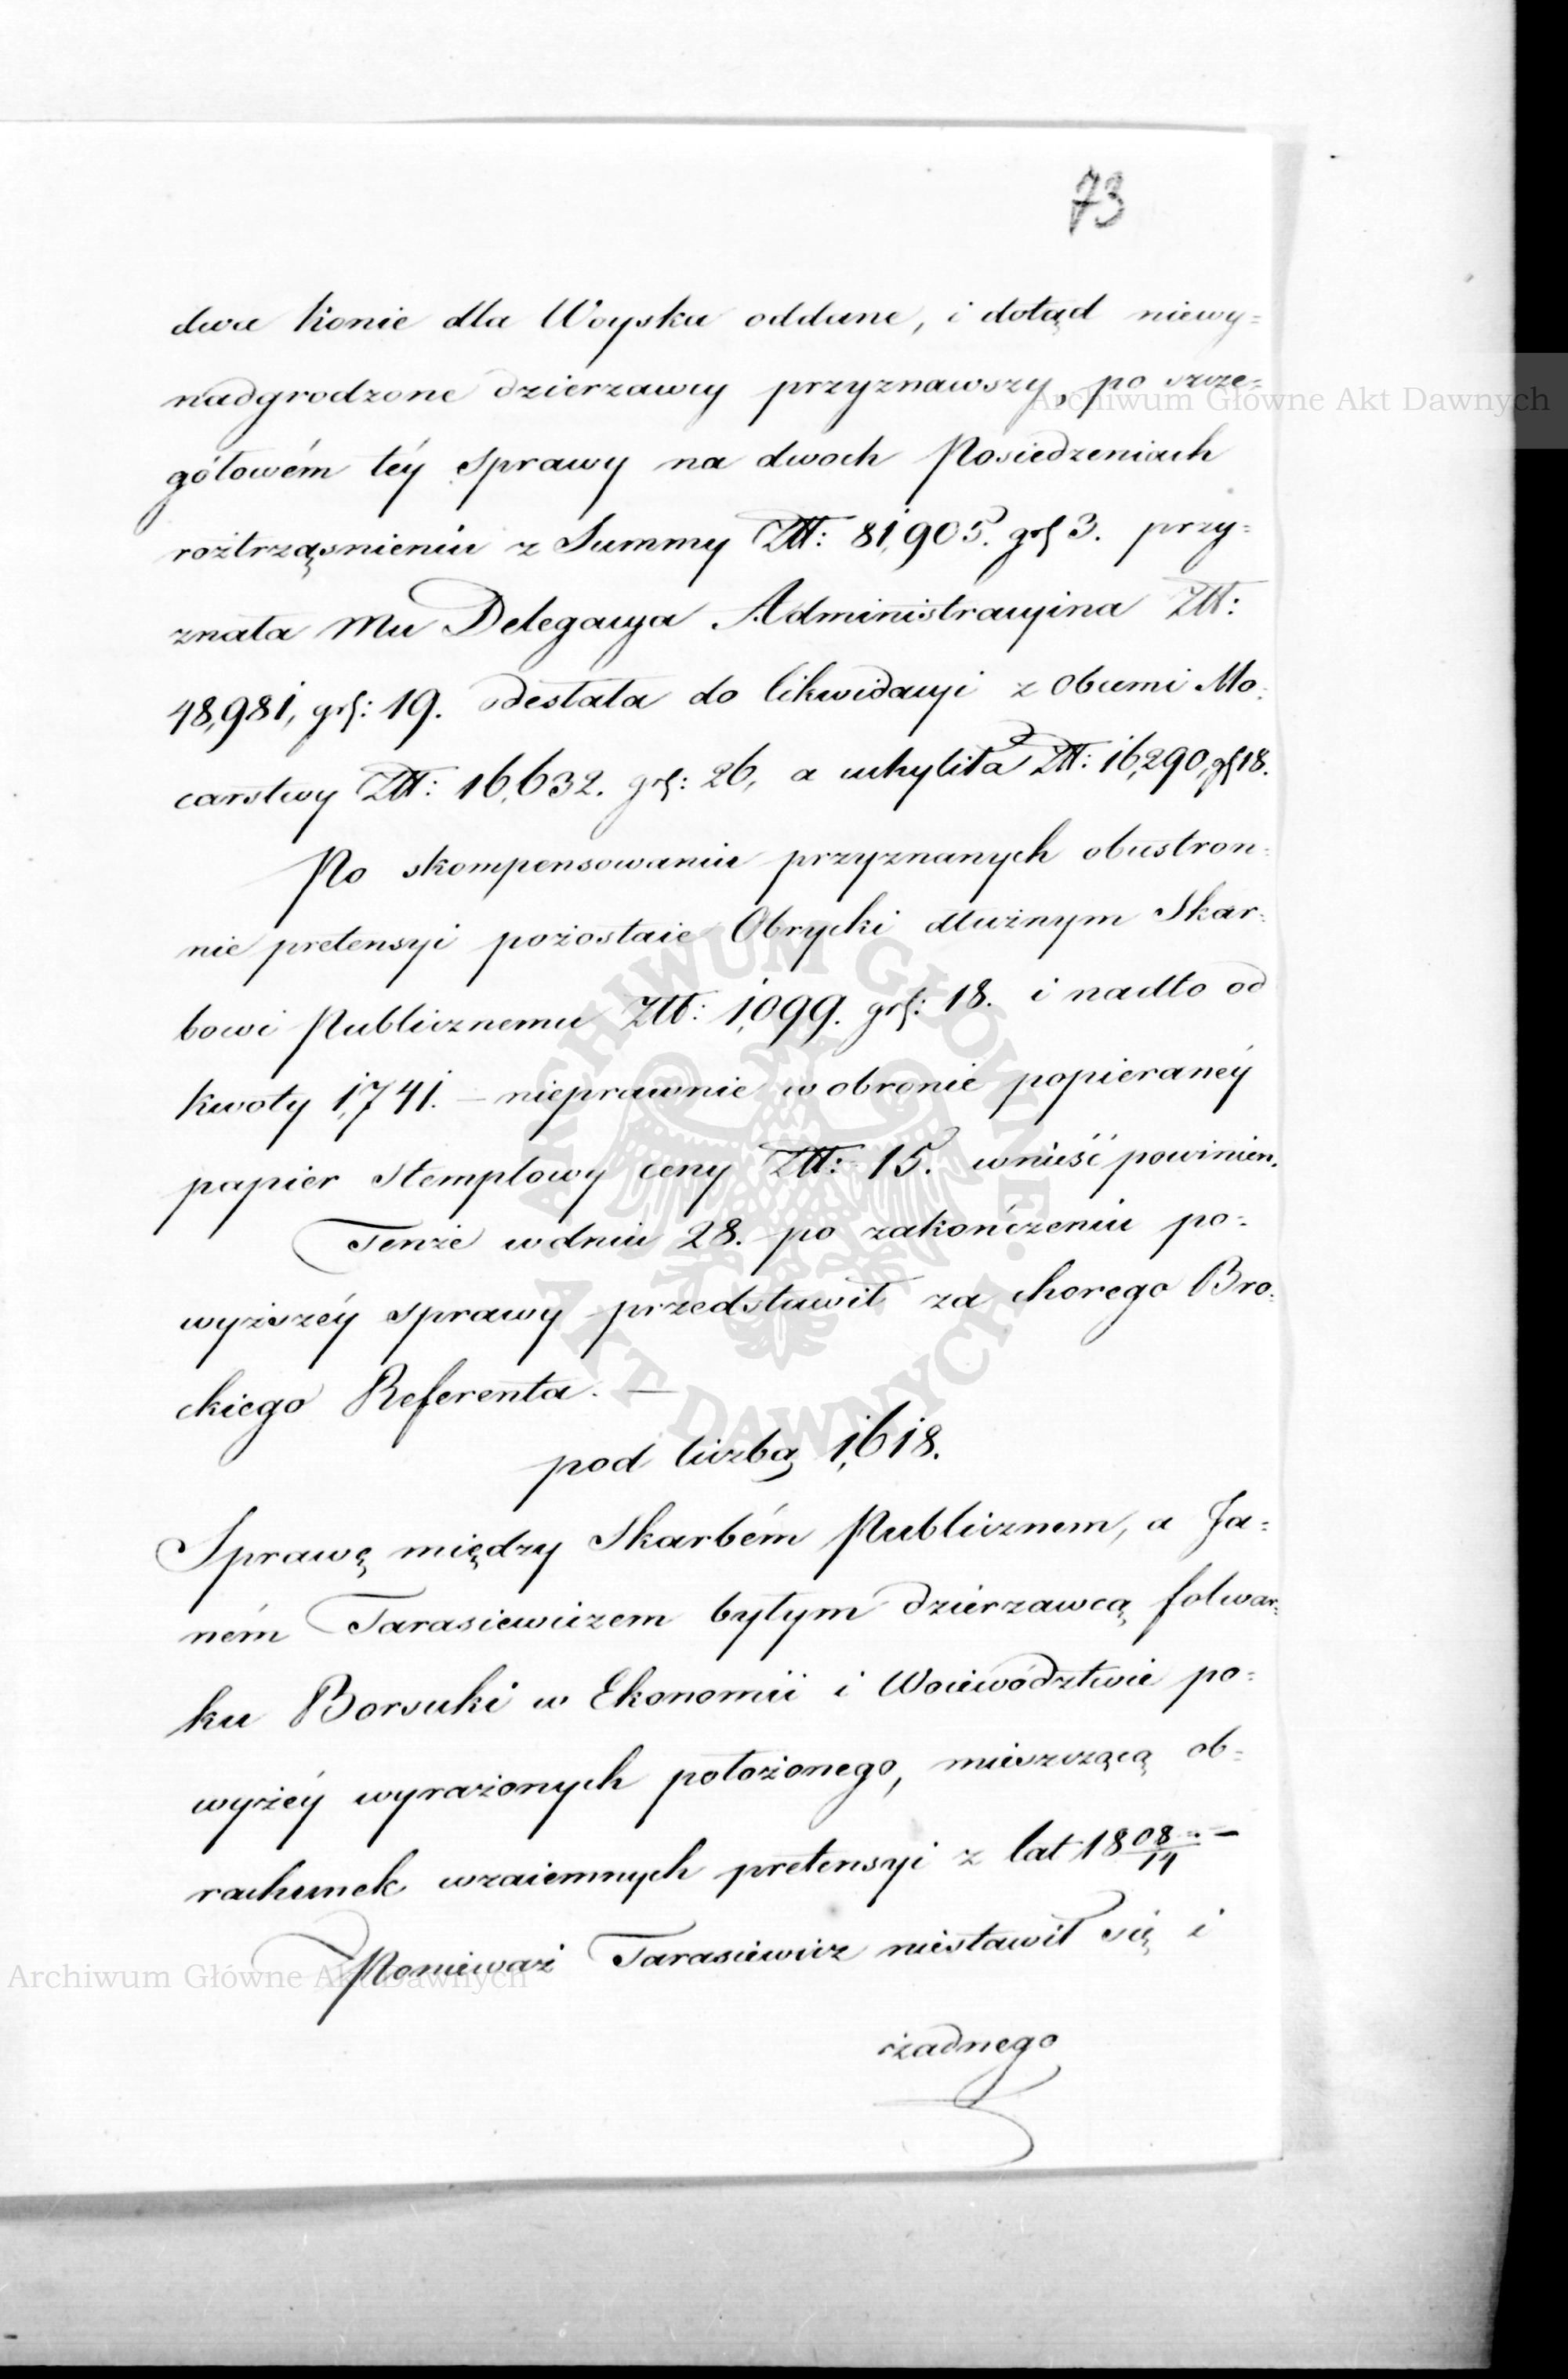 73
dwa konie dla Woyska oddane, i dotąd niewy=
nadgrodzone dzierzawcy przyznawszy, po szcze=
gółowém téy sprawy na dwoch Posiedzeniach
roztrząsnieniu z Summy Złł: 81,905. gr: 3. przy=
znała mu Delegacya Administracyina Złł:
48,981, gr: 19. odesłała do likwidacyi z Obcemi Mo=
carstwy Złł: 16,632. gr: 26, a uchyliła Złł: 16,290, gr 18.
Po skompensowaniu przyznanych obustron=
nie pretensyi pozostaie Obrycki dłużnym Skar=
bowi Publicznemu Złł: 1,099. gr: 18. i nadto od
kwoty 1,741. – nieprawnie w obronie popieranéy
papier stemplowy ceny Złł: 15. wnieść powinien.
Tenże w dniu 28. po zakończeniu po=
wyższéy sprawy przedstawił za chorego Bro=
ckiego Referenta. —
pod liczbą 1,618.
Sprawę między Skarbém Publicznem, a Ja=
ném Tarasiewiczem byłym dzierzawcą folwar=
ku Borsuki w Ekonomii i Woiewództwie po=
wyżéy wyrażonych położonego, mieszczącą ob=
rachunek wzaiemnych pretensyi z lat 1808/14 –
Ponieważ Tarasiewicz niestawił się i
żadnego
Archiwum Główne Akt Dawnych
Archiwum Główne Akt Dawnych
ARCHIWUM GŁÓWNE AKT DAWNYCH